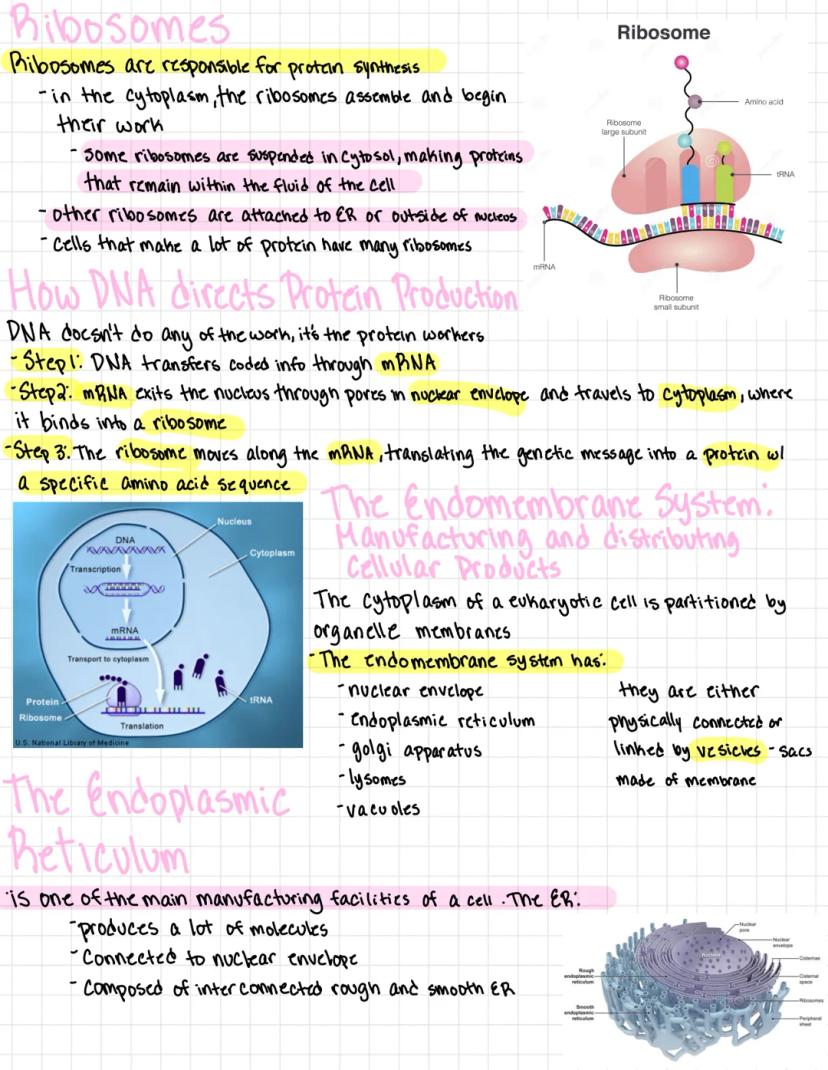 Ribosomes
Ribosomes are responsible for protein synthesis
- in the cytoplasm, the ribosomes assemble and begin
their work
- some ribosomes are suspended in cytosol, making proteins
that remain within the fluid of the cell
- other ribosomes are attached to ER or outside of nucleus
- cells that make a lot of protein have many ribosomes
Ribosome
Amino acid
Ribosome
large subunit
tRNA
mRNA
Ribosome
small subunit
How DNA directs Protein Production
DNA doesn't do any of the work, it's the protein workers
- Step 1: DNA transfers coded info through mRNA
- Step 2: mRNA exits the nucleus through pores in nuclear envelope and travels to cytoplasm, where
it binds into a ribosome
- Step 3: The ribosome moves along the mRNA, translating the genetic message into a protein w/
a specific amino acid sequence
Nucleus
DNA
Cytoplasm
Transcription
mRNA
Transport to cytoplasm
Protein
tRNA
Ribosome
Translation
U.S. National Library of Medicine
The Endomembrane System:
Manufacturing and distributing
Cellular Products
The cytoplasm of a eukaryotic cell is partitioned by
organelle membranes
- The endomembrane system has:
- nuclear envelope
- endoplasmic reticulum
- golgi apparatus
- lysomes
- vacuoles
they are either
physically connected or
linked by vesicles - sacs
made of membrane
The Endoplasmic
Reticulum
is one of the main manufacturing facilities of a cell. The ER:
- produces a lot of molecules
- connected to nuclear envelope
- composed of interconnected rough and smooth ER
Nuclear
pore
Nuclear
envelope
Nucleus
Cisternae
Rough
endoplasmic
reticulum
Cisternal
space
Ribosomes
Smooth
endoplasmic
reticulum
Peripheral
sheet